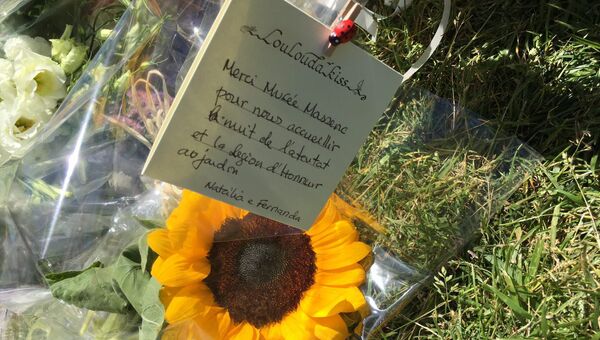 LouLouda Liss
Merci Musée Massena
pour nous accueillir
la nuit de l'atentat
et la Legion d'Honneur
au jardin
Natália e Fernanda